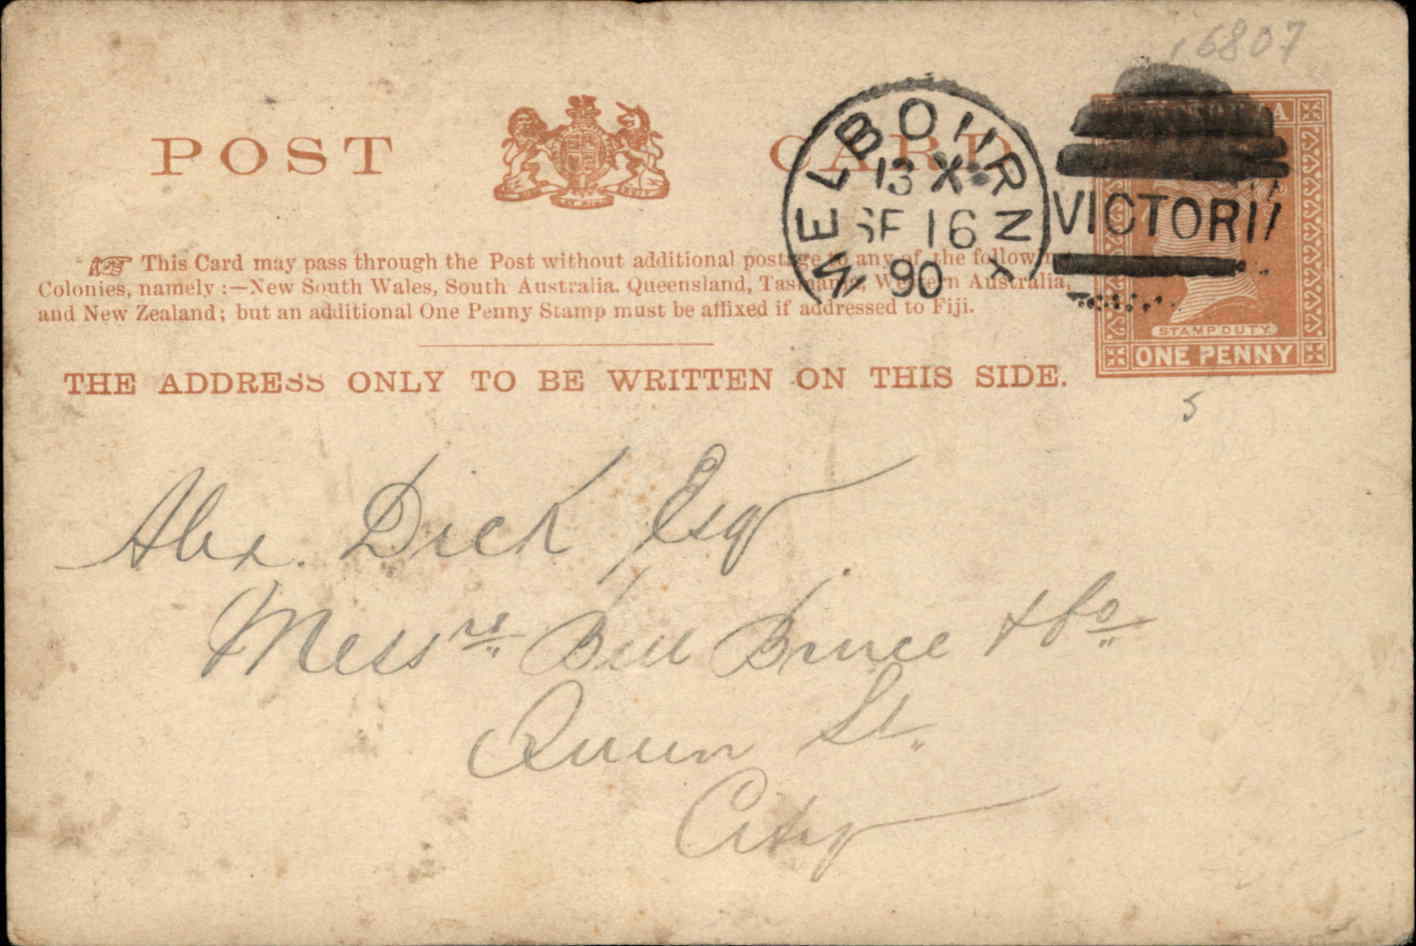 16807
POST CARD
MELBOURN
13 X
SE 16
90
VICTORIA
STAMP DUTY
ONE PENNY
This Card may pass through the Post without additional postage to any of the following
Colonies, namely :—New South Wales, South Australia, Queensland, Tasmania, Western Australia,
and New Zealand; but an additional One Penny Stamp must be affixed if addressed to Fiji.
THE ADDRESS ONLY TO BE WRITTEN ON THIS SIDE.
5
Alex. Dick Esq
Messrs Bell Bruce & Co
Queen St.
City